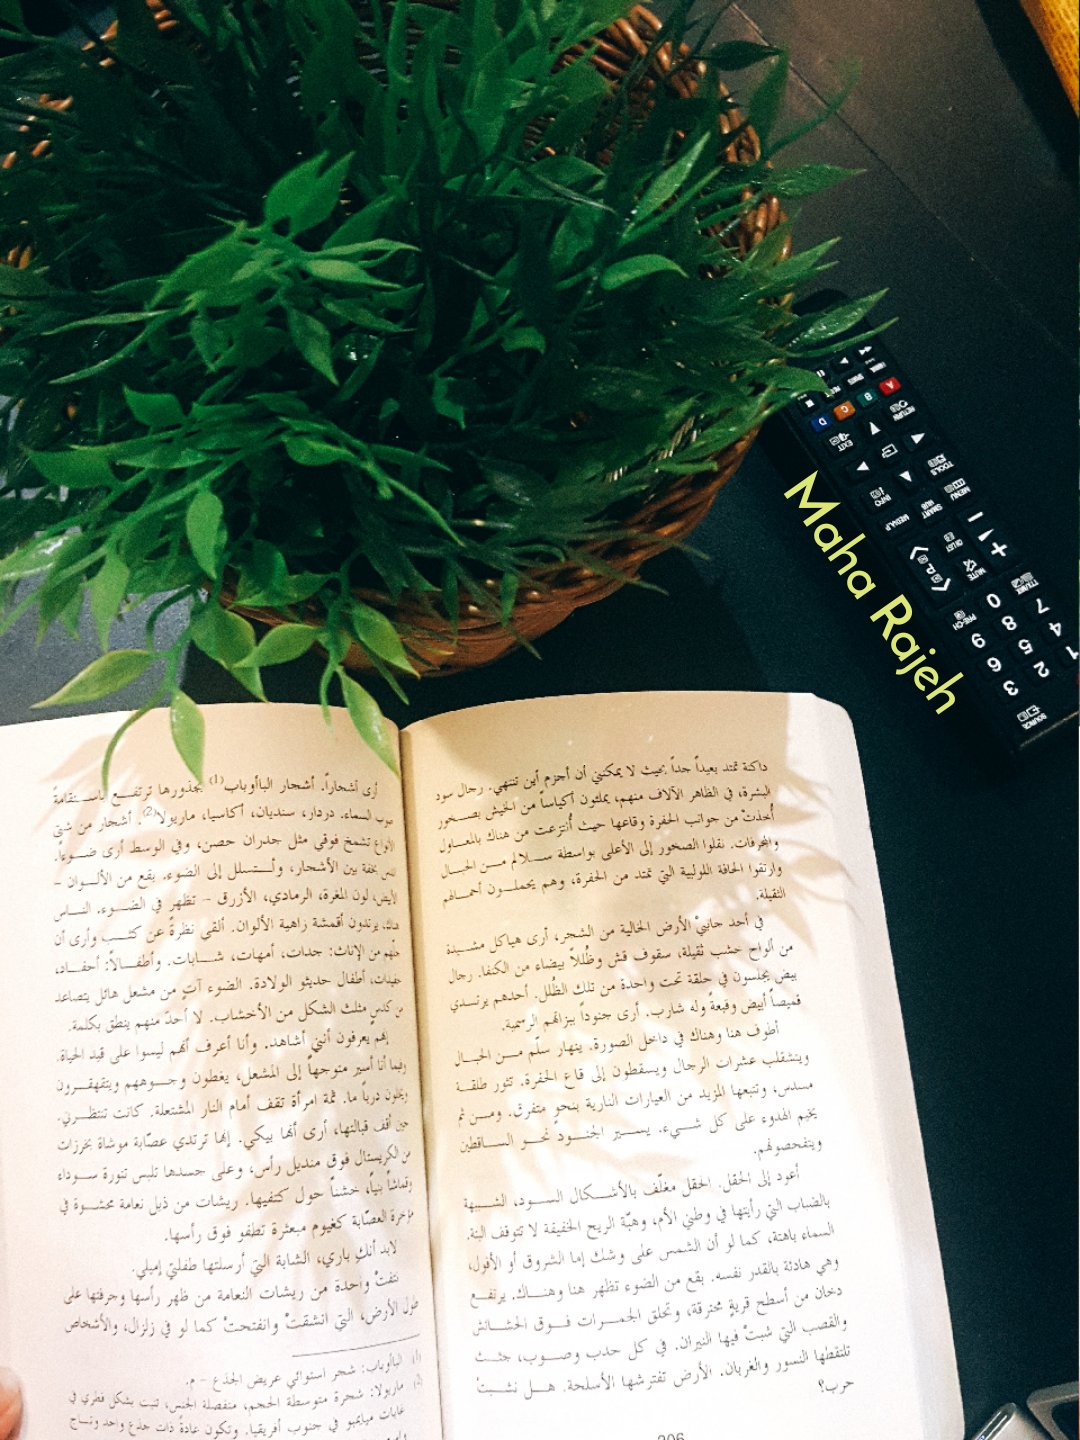 داكنة تمتد بعيداً جداً بحيث لا يمكنني أن أجزم أين تنتهي. رجال سود
البشرة، في الظاهر الآلاف منهم، يملئون أكياساً من الخيش بصخور
أُخذتْ من جوانب الحفرة وقاعها حيث أُنتزعت من هناك بالمعاول
والمجرفات. نقلوا الصخور إلى الأعلى بواسطة سلالم من الحبال
وارتقوا الحافة اللولبية التي تمتد من الحفرة، وهم يحملون أحمالهم
الثقيلة.
في أحد جانبيْ الأرض الخالية من الشجر، أرى هياكل مشيدة
من ألواح خشب ثقيلة، سقوف قش وظُللاً بيضاء من الكنفا. رجال
بيض يجلسون في حلقة تحت واحدة من تلك الظُلل. أحدهم يرتدي
قميصاً أبيض وقبعةً وله شارب. أرى جنوداً ببزاتهم الرسمية.
أطوف هنا وهناك في داخل الصورة. ينهار سلّم من الحبال
ويتشقلب عشرات الرجال ويسقطون إلى قاع الحفرة. تثور طلقة
مسدس، وتتبعها المزيد من العيارات النارية بنحوٍ متفرق. ومن ثم
يخيّم الهدوء على كل شيء. يسير الجنود نحو الساقطين
ويتفحصوهم.
أعود إلى الحقل. الحقل مغلّف بالأشكال السود، الشبيهة
بالضباب التي رأيتها في وطني الأم، وهبّة الريح الخفيفة لا تتوقف البتة.
السماء باهتة، كما لو أن الشمس على وشك إما الشروق أو الأفول،
وهي هادئة بالقدر نفسه. بقع من الضوء تظهر هنا وهناك. يرتفع
دخان من أسطح قريةٍ محترقة، وتحلق الجمرات فوق الحشائش
والقصب التي شبتْ فيها النيران. في كل حدب وصوب، جثث
تلتقطها النسور والغربان. الأرض تفترشها الأسلحة. هل نشبتْ
حرب؟
206
أرى أشجاراً. أشجار الباأوباب(1) بجذورها ترتفع باستقامةً
صوب السماء. دردار، سنديان، أكاسيا، ماريولا(2). أشجار من شتى
الأنواع تشمخ فوقي مثل جدران حصن، وفي الوسط أرى ضوءاً.
بخفة بين الأشجار، وأتسلل إلى الضوء. بقع من الألوان -
الأبيض، لون المغرة، الرمادي، الأزرق - تظهر في الضوء. الناس
هناك يرتدون أقمشة زاهية الألوان. ألقي نظرةً عن كثب وأرى أن
جلّهم من الإناث: جدات، أمهات، شابات. وأطفالاً: أحفاد،
حفيدات، أطفال حديثو الولادة. الضوء آتٍ من مشعل هائل يتصاعد
من كدسٍ مثلث الشكل من الأخشاب. لا أحدَ منهم ينطق بكلمة.
إنهم يعرفون أنني أشاهد. وأنا أعرف أنهم ليسوا على قيد الحياة.
وفيما أنا أسير متوجهاً إلى المشعل، يغطون وجوههم ويتقهقرون
ويخلون درباً ما. ثمة امرأة تقف أمام النار المشتعلة. كانت تنتظرني.
حين أقف قبالتها، أرى أنها بيكي. إنها ترتدي عصّابة موشاة بخرزات
من الكريستال فوق منديل رأس، وعلى جسدها تلبس تنورة سوداء
وقماشاً بنياً، خشناً حول كتفيها. ريشات من ذيل نعامة محشوة في
مؤخرة العصّابة كغيوم مبعثرة تطفو فوق رأسها.
لابد أنكِ باري، الشابة التي أرسلتها طفلتي إميلي.
نتفتْ واحدة من ريشات النعامة من ظهر رأسها وجرفتها على
طول الأرض، التي انشقتْ وانفتحتْ كما لو في زلزال، والأشخاص
(1) الباأوباب: شجر استوائي عريض الجذع - م.
(2) ماريولا: شجرة متوسطة الحجم، منفصلة الجنس، تنبت بشكل فطري في
غابات ميامبو في جنوب أفريقيا. وتكون عادةً ذات جذع واحد وتاج
Maha Rajeh
A B C D
RETURN EXIT
TOOLS INFO
MENU SMART HUB MEDIA.P
CH LIST P
MUTE
TTX/MIX 0 PRE-CH
7 8 9
4 5 6
1 2 3
SOURCE